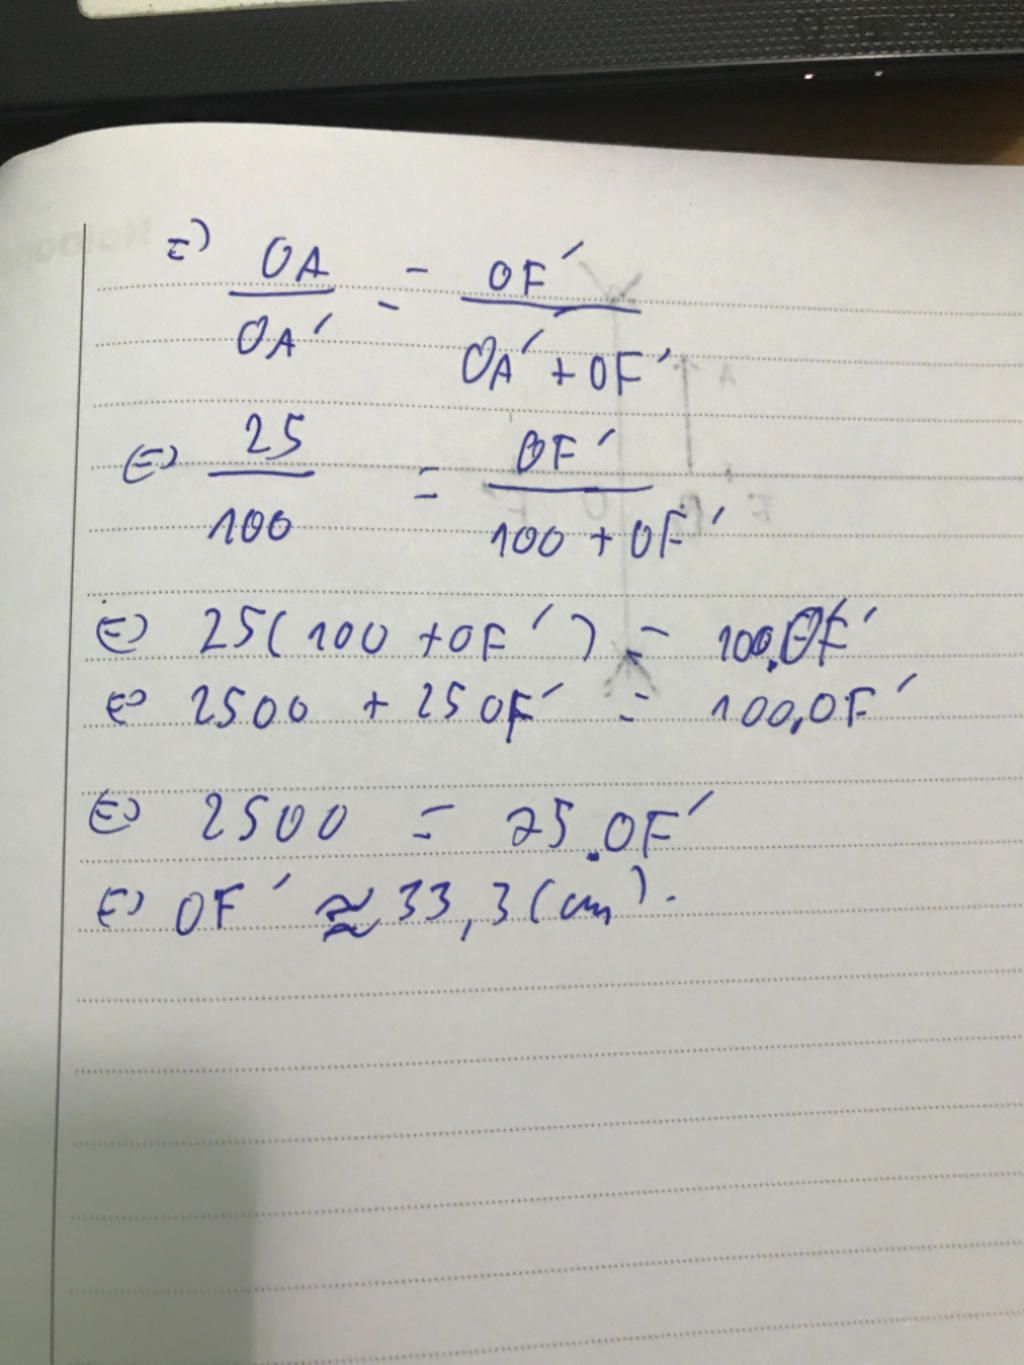 => OA/OA' = OF'/(OA' + OF')
<=> 25/100 = OF'/(100 + OF')
<=> 25(100 + OF') = 100.OF'
<=> 2500 + 25 OF' = 100.OF'
<=> 2500 = 75.OF'
<=> OF' ≈ 33,3 (cm).